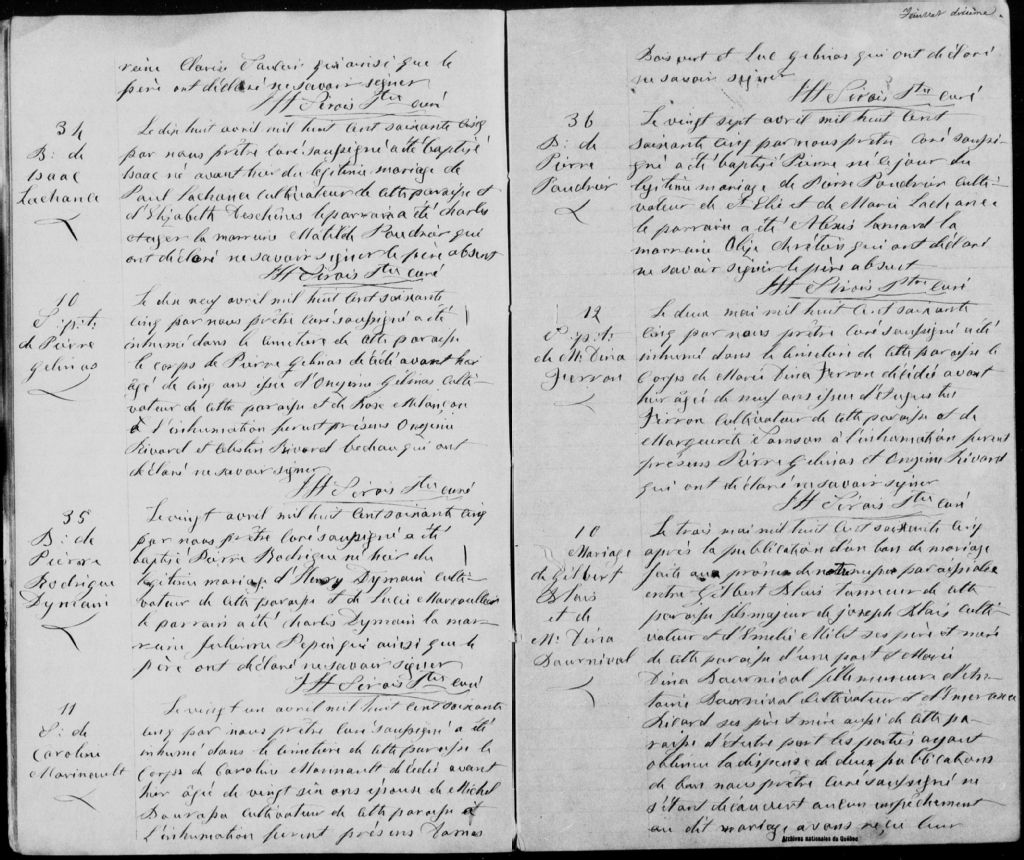 raine Claris ainsi que le
père ont déclaré ne savoir signer
JH Sirois Ptre curé
34
B: de
Isaac
Lachance
Le dix huit avril mil huit cent soixante cinq
par nous prêtre curé soussigné a été baptisé
Isaac né avant hier du légitime mariage de
Paul Lachance cultivateur de cette paroisse et
d'Elizabeth Deschênes le parrain a été Charles
la marraine Matilde Paudrier qui
ont déclaré ne savoir signer le père absent
JH Sirois Ptre curé
10
S: p:t:
de Pierre
Gelinas
Le dix neuf avril mil huit cent soixante
cinq par nous prêtre curé soussigné a été
inhumé dans le cimetière de cette paroisse
le corps de Pierre Gelinas décédé avant hier
âgé de cinq ans issu d'Onezime Gelinas culti-
vateur de cette paroisse et de Rose Melançon
à l'inhumation furent présens Onezime
Rivard et Celestin Rivard bedeau qui ont
déclaré ne savoir signer
JH Sirois Ptre curé
35
B: de
Pierre
Rodrigue
Dymain
Le vingt avril mil huit cent soixante cinq
par nous prêtre curé soussigné a été
baptisé Pierre Rodrigue né hier du
légitime mariage d'Henry Dymain culti-
vateur de cette paroisse et de Lucie
le parrain a été Charles Dymain la mar-
raine Pepin qui ainsi que le
père ont déclaré ne savoir signer
JH Sirois Ptre curé
11
S: de
Caroline
Marinault
Le vingt un avril mil huit cent soixante
cinq par nous prêtre curé soussigné a été
inhumé dans le cimetière de cette paroisse le
corps de Caroline décédé avant
hier âgé de vingt six ans épouse de Michel
cultivateur de cette paroisse à
l'inhumation furent présens
Feuillet dixième.
et Luc Gelinas qui ont déclaré
ne savoir signer
JH Sirois Ptre curé
36
B: de
Pierre
Paudrier
Le vingt sept avril mil huit cent
soixante cinq par nous prêtre curé soussi-
gné a été baptisé Pierre né le jour du
légitime mariage de Pierre Paudrier culti-
vateur de St Elie et de Marie Lachance
le parrain a été Alexis Lamard la
marraine Chrétien qui ont déclaré
ne savoir signer le père absent
JH Sirois Ptre curé
12
S: p:t:
de M: Dina
Ferron
Le deux mai mil huit cent soixante
cinq par nous prêtre curé soussigné a été
inhumé dans le cimetière de cette paroisse le
corps de Marie Dina Ferron décédée avant
hier âgé de neuf ans issue d'Augustin
Ferron cultivateur de cette paroisse et de
Marguerite Samson à l'inhumation furent
présens Pierre Gelinas et Onezime Rivard
qui ont déclaré ne savoir signer
JH Sirois Ptre curé
10
Mariage
de Gilbert
Blais
et de
M: Dina
Daurnival
Le trois mai mil huit cent soixante cinq
après la publication d'un ban de mariage
faite au prône de notre messe paroissiale
entre Gilbert Blais tanneur de cette
paroisse fils majeur de Joseph Blais culti-
vateur et d'Emelie Milot ses père et mère
de cette paroisse d'une part & Marie
Dina Daurnival fille mineure d'An-
toine Daurnival cultivateur et d'Emerance
Ricard ses père et mère aussi de cette pa-
roisse d'autre part les parties ayant
obtenu la dispense de deux publications
de ban nous prêtre curé soussigné ne
s'étant découvert aucun empêchement
au dit mariage avons reçu leur
Archives nationales du Québec